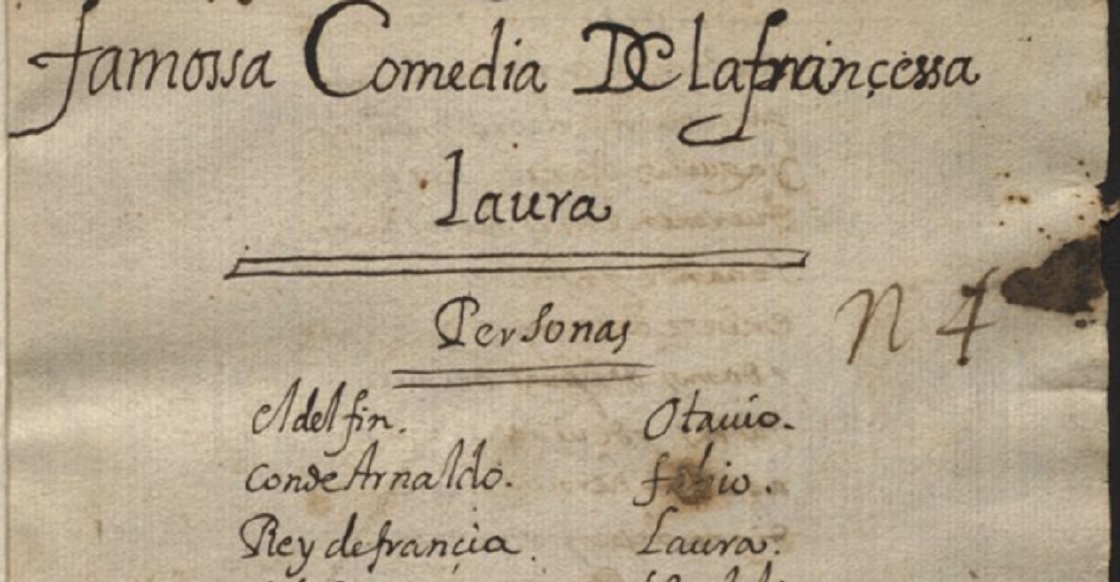 famossa Comedia De la françessa
Laura
Personas
N 4
el delfin. Otauio.
conde Arnaldo. fabio.
Rey de françia. Laura.